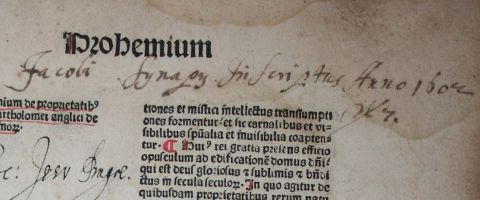 Prohemium
Jacobi Synapy Inscriptus Anno 1602
nium de proprietatibꝰ
artholomei anglici de
tiones et mistici intellectus transsumpti
ones formentur: et sic carnalibus et vi-
sibilibus spūalia et inuisibilia coapten
tur. ¶ Huiꝰ rei gratia presens efficio
opusculum ad edificationē domus dn̄i:
qui est deus gloriosus ⁊ sublimis ⁊ bn̄di
ctus in secula seculoꝝ. In quo agitur de
quibusdam proprietatibus rerum natu